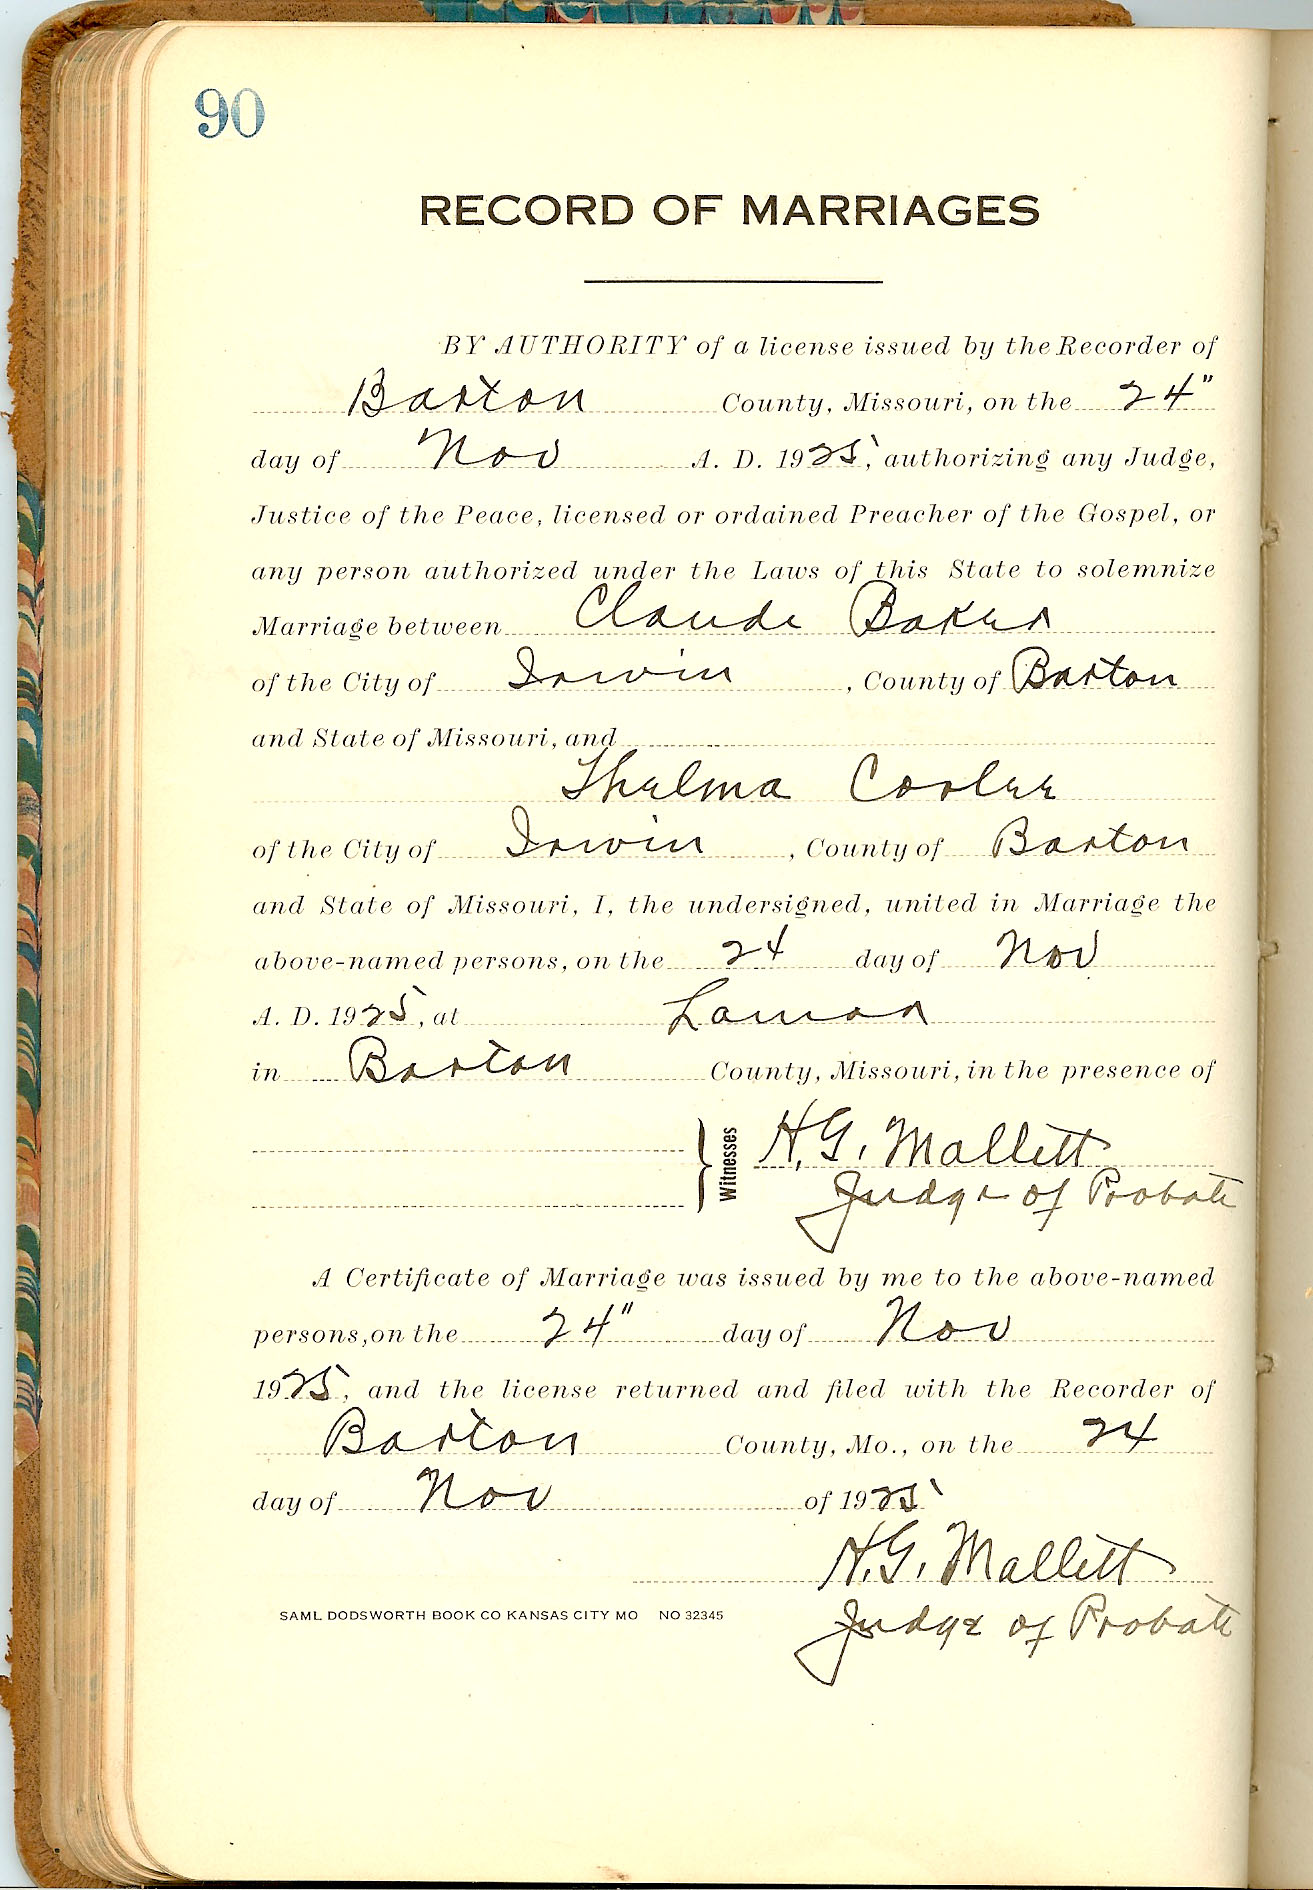 90
RECORD OF MARRIAGES
BY AUTHORITY of a license issued by the Recorder of
Barton County, Missouri, on the 24"
day of Nov A. D. 1925, authorizing any Judge,
Justice of the Peace, licensed or ordained Preacher of the Gospel, or
any person authorized under the Laws of this State to solemnize
Marriage between Claude Baker
of the City of Irwin, County of Barton
and State of Missouri, and
Thelma
of the City of Irwin, County of Barton
and State of Missouri, I, the undersigned, united in Marriage the
above-named persons, on the 24 day of Nov
A. D. 1925, at Lamar
in Barton County, Missouri, in the presence of
Witnesses H. G. Mallett
Judge of Probate
A Certificate of Marriage was issued by me to the above-named
persons, on the 24" day of Nov
1925, and the license returned and filed with the Recorder of
Barton County, Mo., on the 24
day of Nov of 1925
H. G. Mallett
SAML DODSWORTH BOOK CO KANSAS CITY MO NO 32345
Judge of Probate